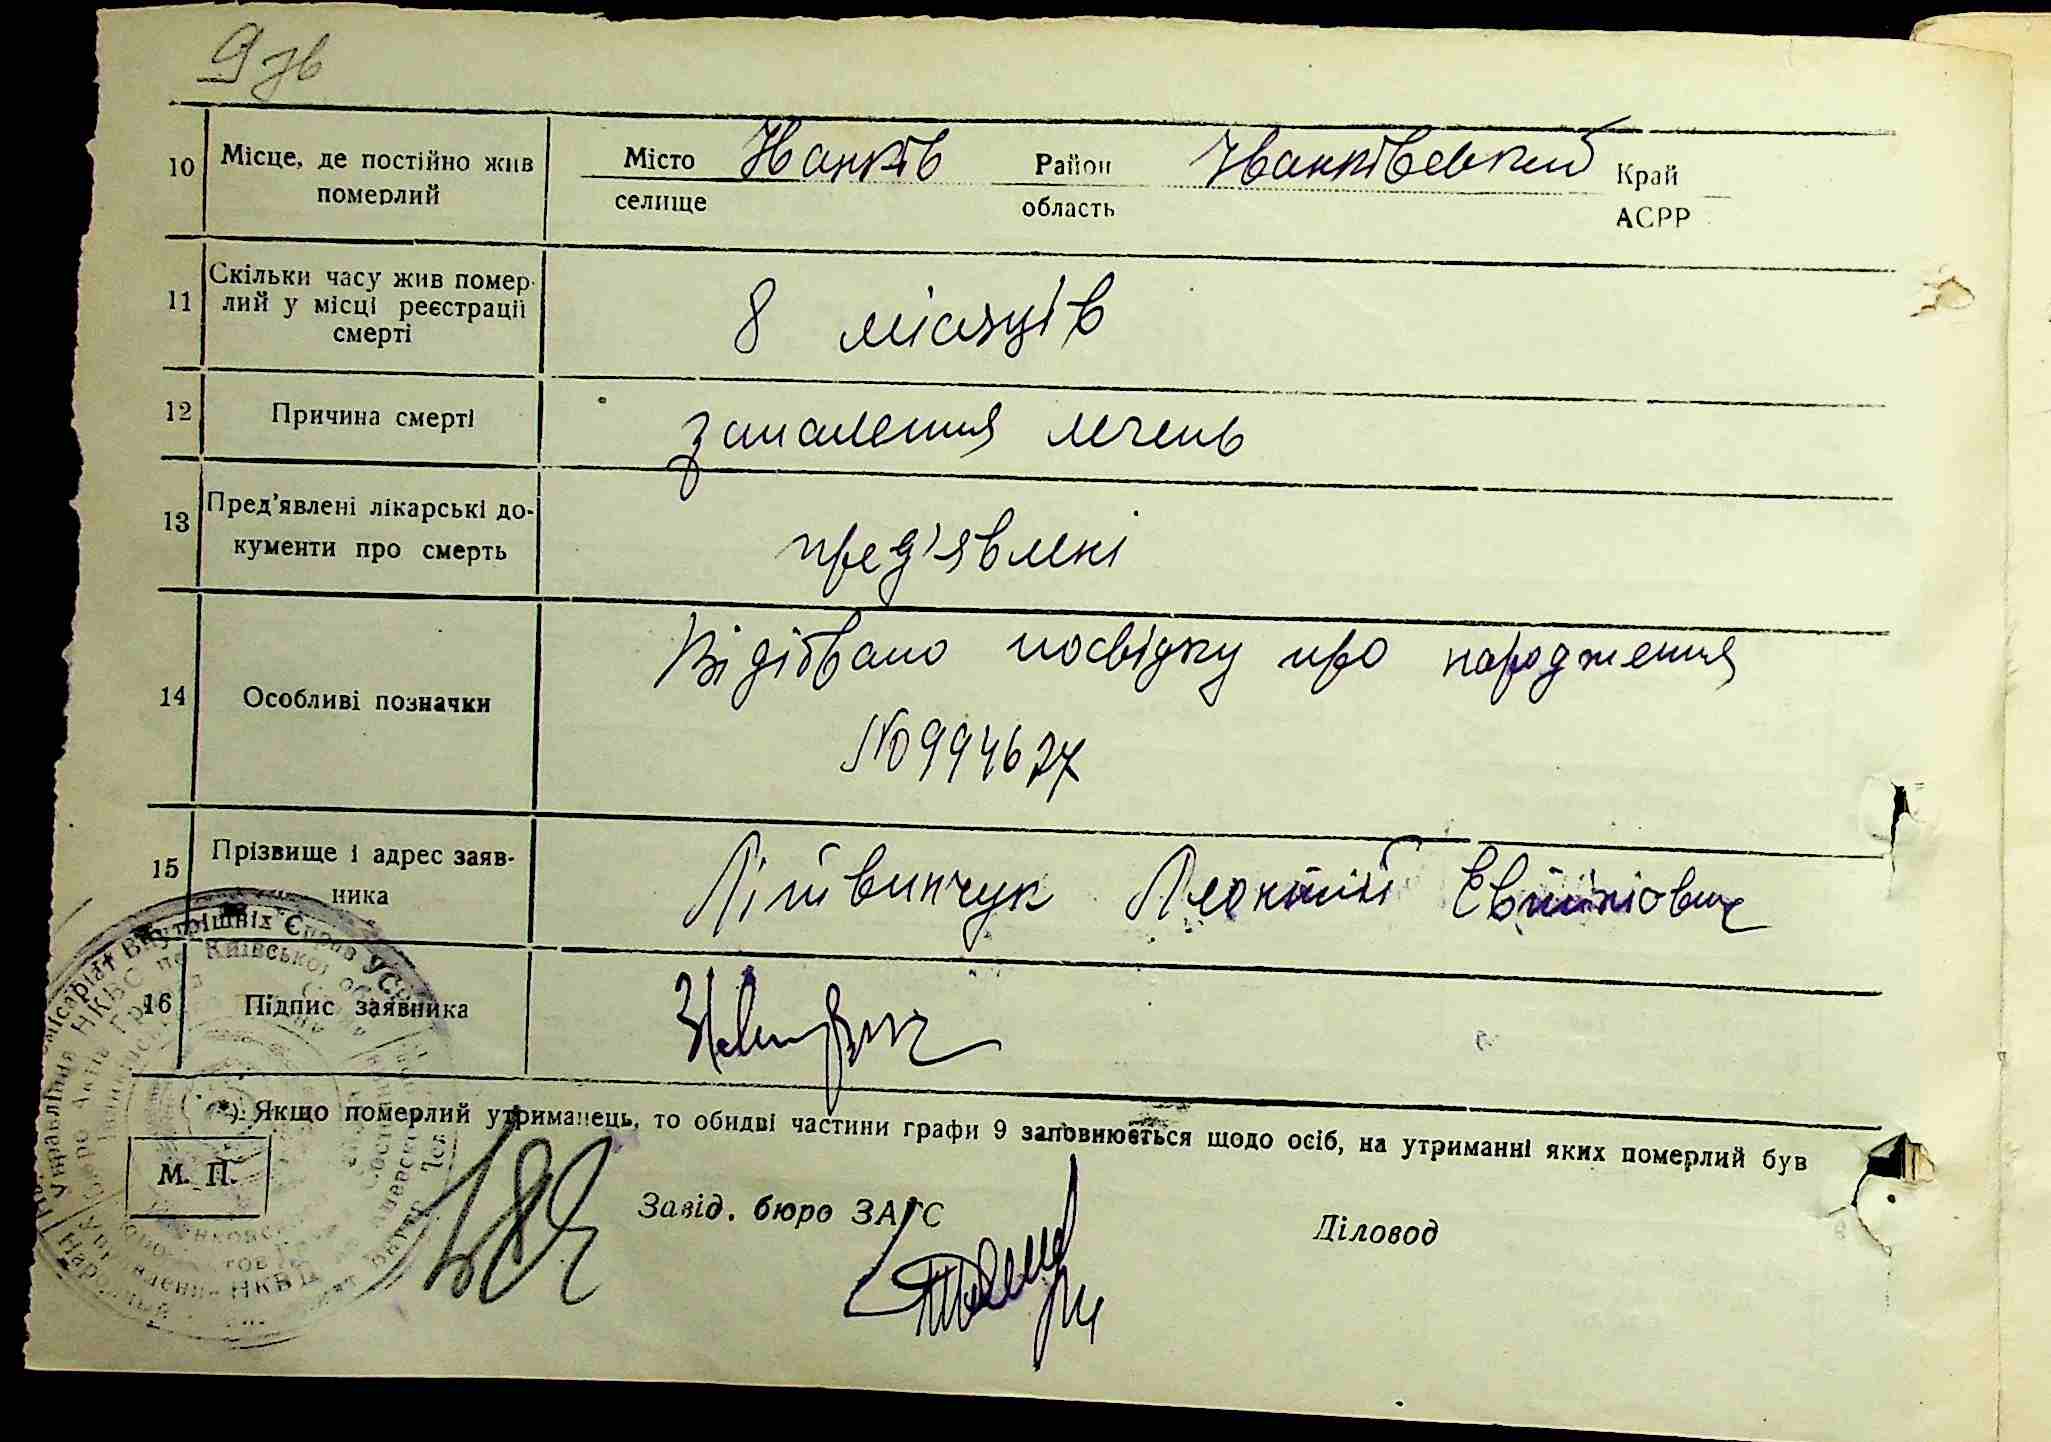 9 зв
10 Місце, де постійно жив померлий Місто селище Іванків Район область Іванківський Край АСРР
11 Скільки часу жив помер-
лий у місці реєстрації
смерті
8 місяців
12 Причина смерті запалення легень
13 Пред'явлені лікарські до-
кументи про смерть
пред'явлені
14 Особливі позначки
Відібрано посвідку про народження
№ 994627
15 Прізвище і адрес заяв-
ника
Літвинчук Леонтій
16 Підпис заявника
*) Якщо померлий утриманець, то обидві частини графи 9 заповнюється щодо осіб, на утриманні яких померлий був
М. П.
Завід. бюро ЗАГС Діловод